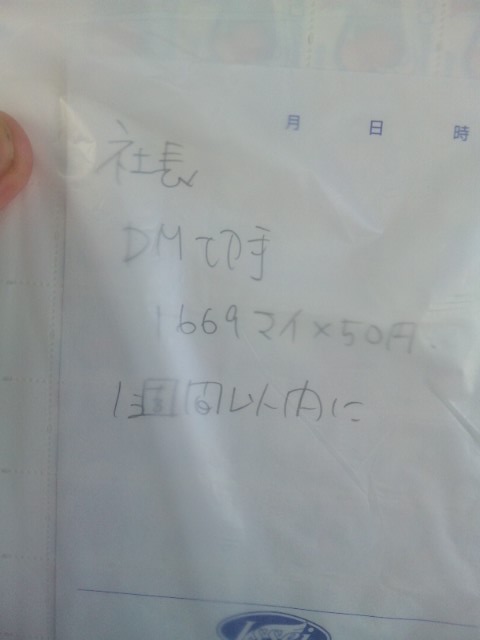 月 日 時
社長
DM切手
1669マイ×50円
1週間以内に